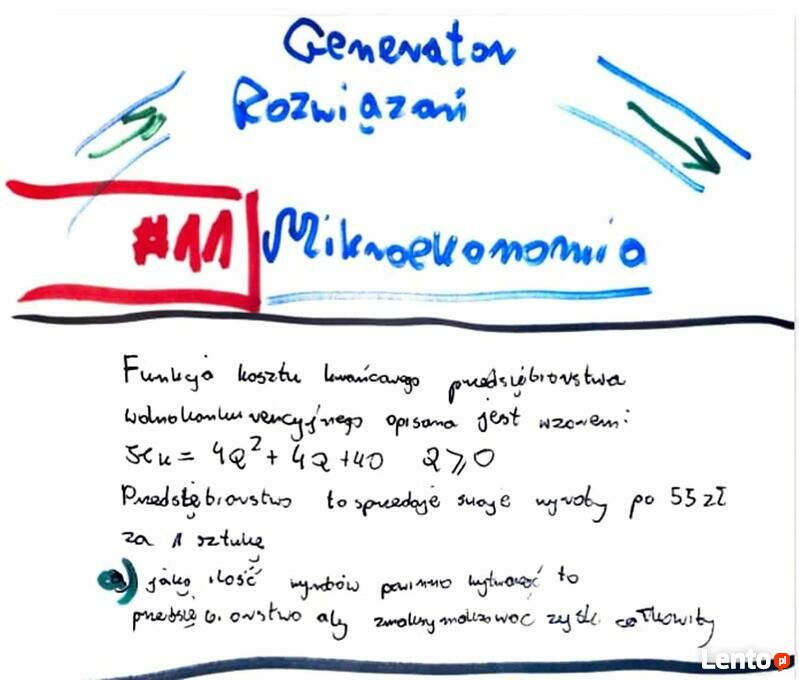 Generator
Rozwiązań
#11 Mikroekonomia
Funkcja kosztu krańcowego przedsiębiorstwa
wolnokonkurencyjnego opisana jest wzorem:
= 4Q²+ 4Q+40 Q⩾0
Przedsiębiorstwo to sprzedaje swoje wyroby po 55 zł
za 1 sztukę
a) jaką ilość wyrobów powinno wytwarzać to
przedsiębiorstwo aby zmaksymalizować zysk całkowity
Lento.pl